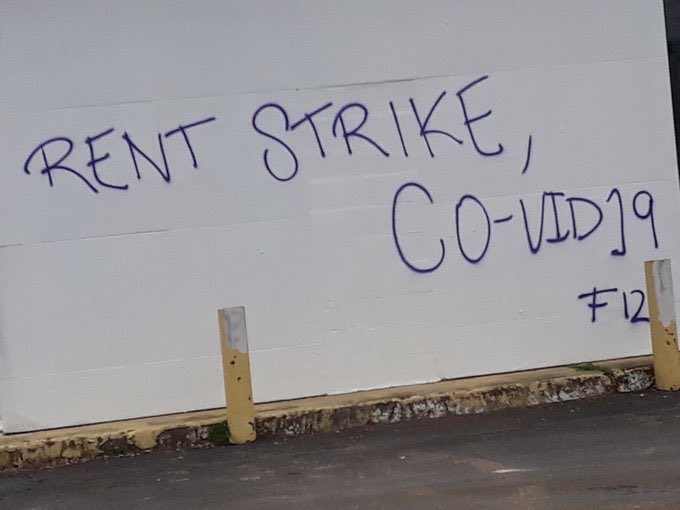 RENT STRIKE,
CO-VID19
F12